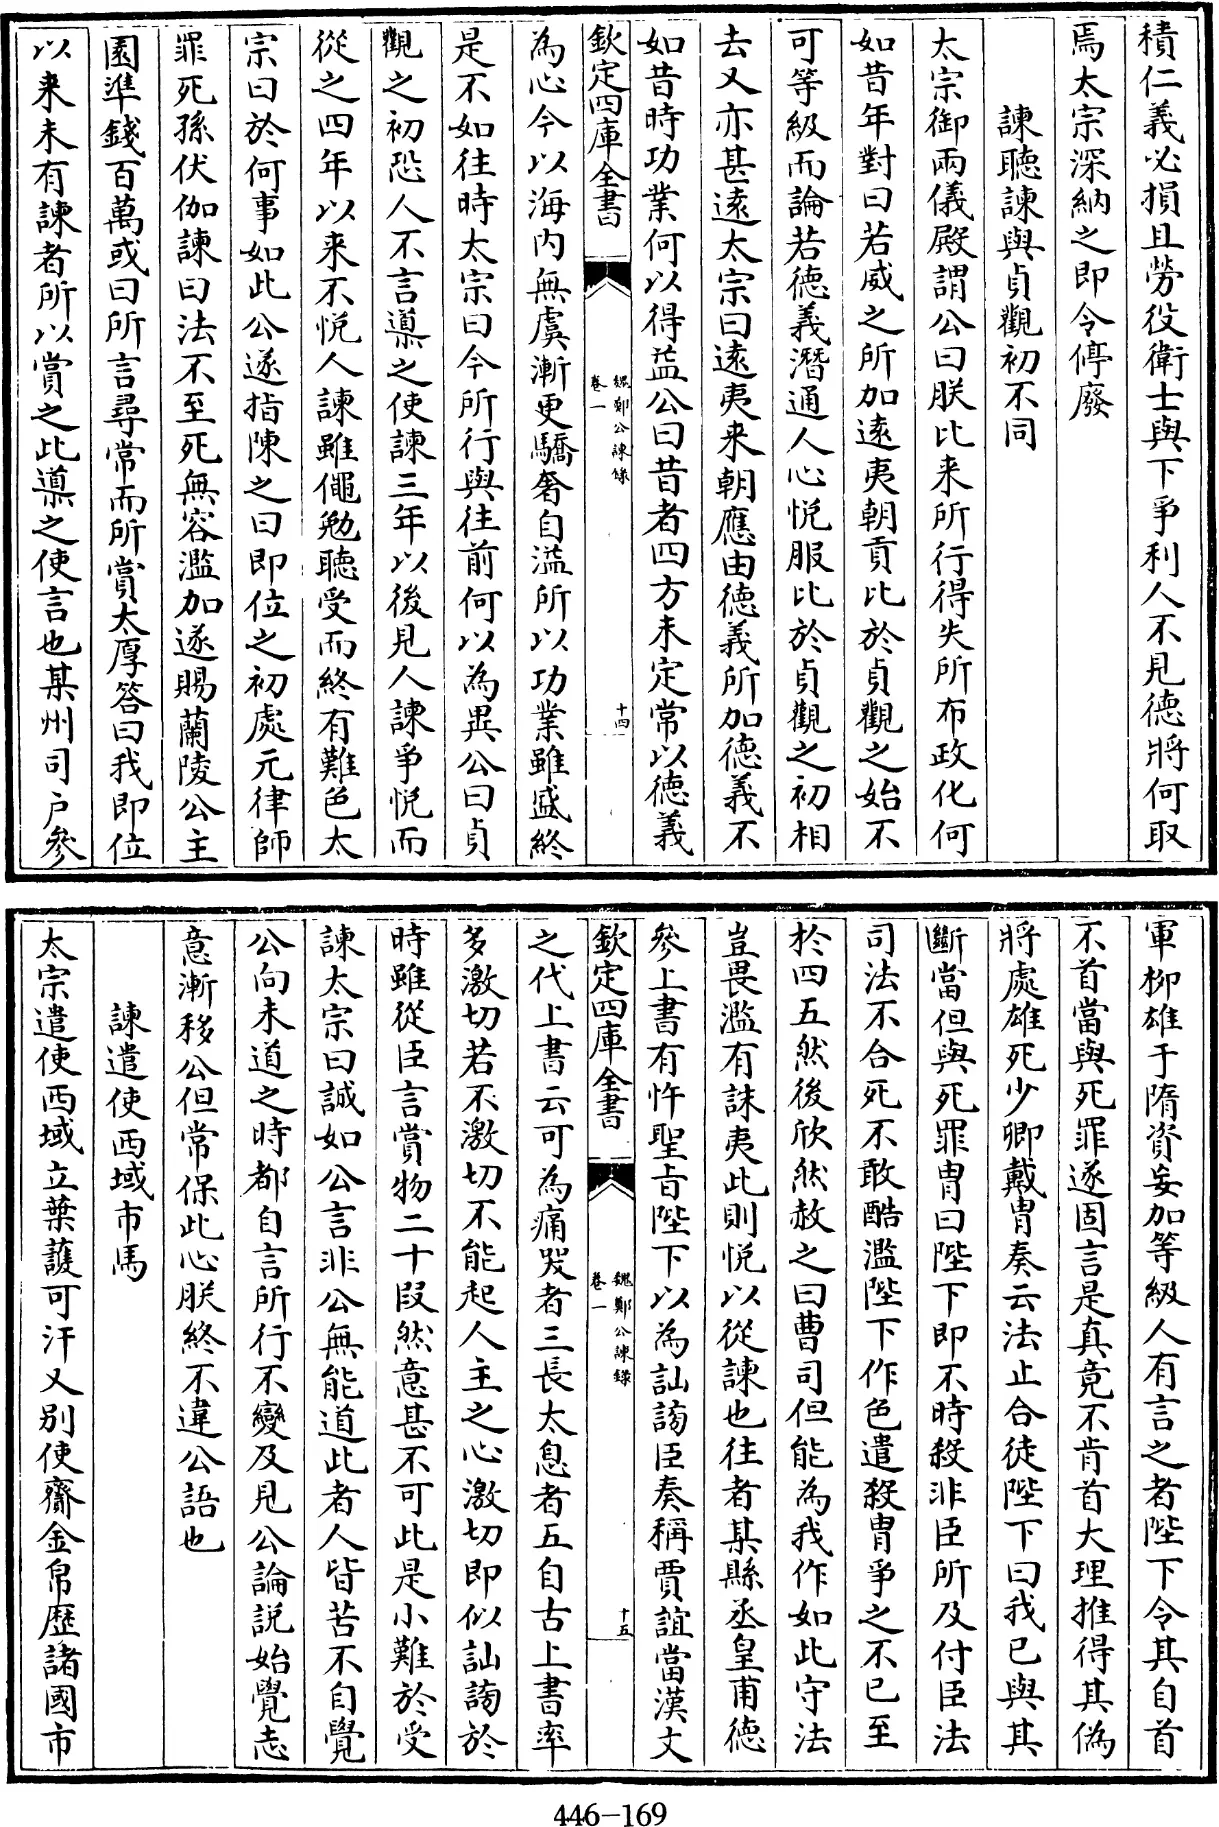 積仁義必損且勞役衛士與下爭利人不見德將何取
焉太宗深納之即令停廢
諫聽諫與貞觀初不同
太宗御兩儀殿謂公曰朕比来所行得失所布政化何
如昔年對曰若威之所加逺夷朝貢比於貞觀之始不
可等級而論若德義潛通人心悦服比於貞觀之初相
去又亦甚逺太宗曰逺夷来朝應由德義所加德義不
如昔時功業何以得益公曰昔者四方未定常以德義
欽定四庫全書
魏鄭公諫録
卷一
十四
為心今以海内無虞漸更驕奢自溢所以功業雖盛終
是不如往時太宗曰今所行與往前何以為異公曰貞
觀之初恐人不言導之使諫三年以後見人諫爭悦而
從之四年以来不悦人諫雖僶勉聽受而終有難色太
宗曰於何事如此公遂指陳之曰即位之初處元律師
罪死孫伏伽諫曰法不至死無容濫加遂賜蘭陵公主
園準錢百萬或曰所言尋常而所賞太厚答曰我即位
以来未有諫者所以賞之此導之使言也某州司户參
軍栁雄于隋資妄加等級人有言之者陛下令其自首
不首當與死罪遂固言是真竟不肯首大理推得其偽
將處雄死少卿戴胄奏云法止合徒陛下曰我已與其
斷當但與死罪胄曰陛下即不時殺非臣所及付臣法
司法不合死不敢酷濫陛下作色遣殺胄爭之不已至
於四五然後欣然赦之曰曹司但能為我作如此守法
豈畏濫有誅夷此則悦以從諫也往者某縣丞皇甫德
參上書有忤聖㫖陛下以為訕謗臣奏稱賈誼當漢文
欽定四庫全書
魏鄭公諫録
卷一
十五
之代上書云可為痛哭者三長太息者五自古上書率
多激切若不激切不能起人主之心激切即似訕謗於
時雖從臣言賞物二十段然意甚不可此是小難於受
諫太宗曰誠如公言非公無能道此者人皆苦不自覺
公向未道之時都自言所行不變及見公論説始覺志
意漸移公但常保此心朕終不違公語也
諫遣使西域市馬
太宗遣使西域立葉護可汗又別使齎金帛歴諸國市
446-169